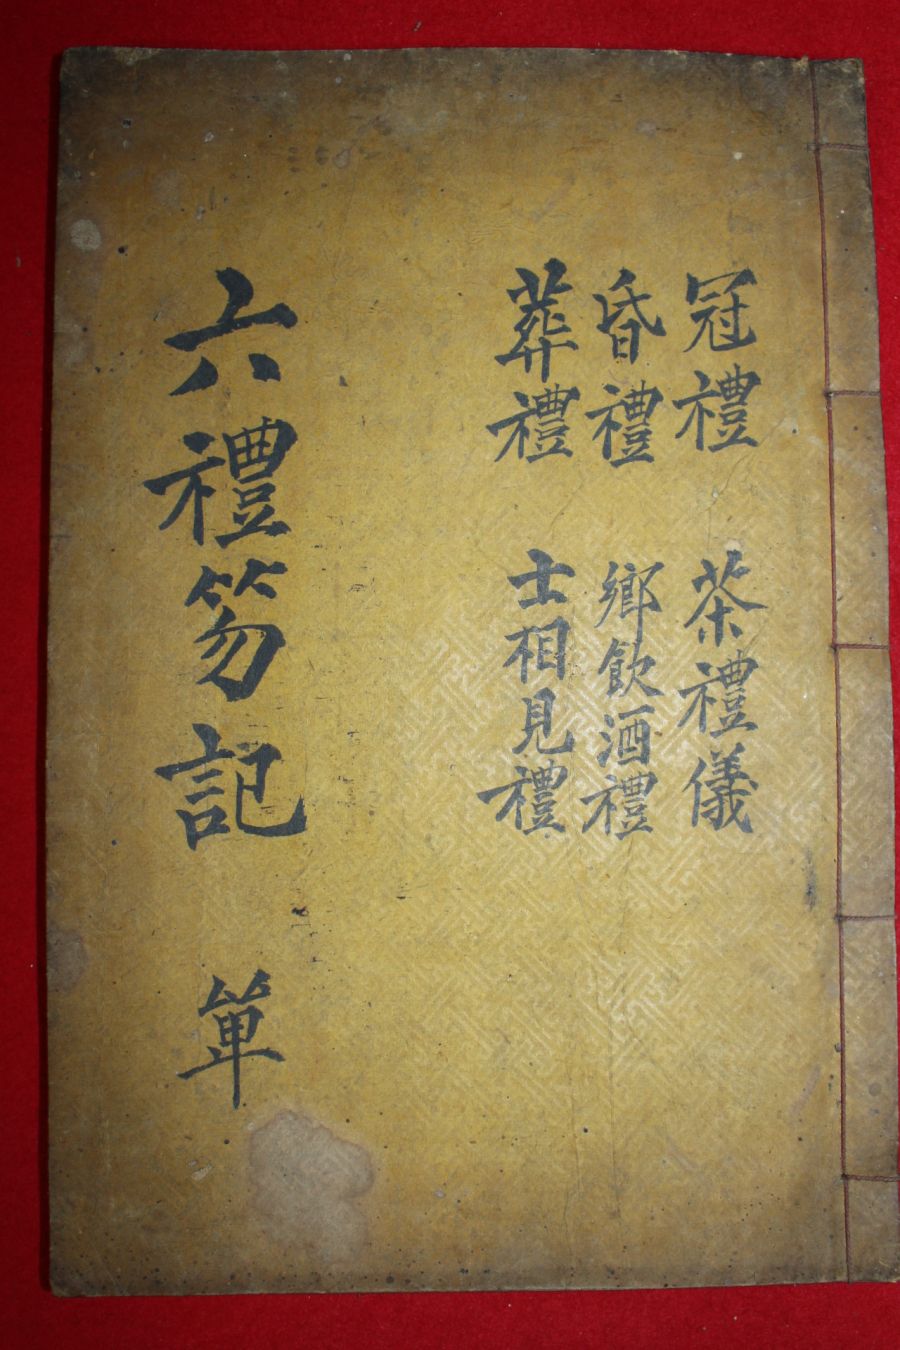 冠禮 茶禮儀
昏禮 鄉飮酒禮
葬禮 士相見禮
六禮笏記 單